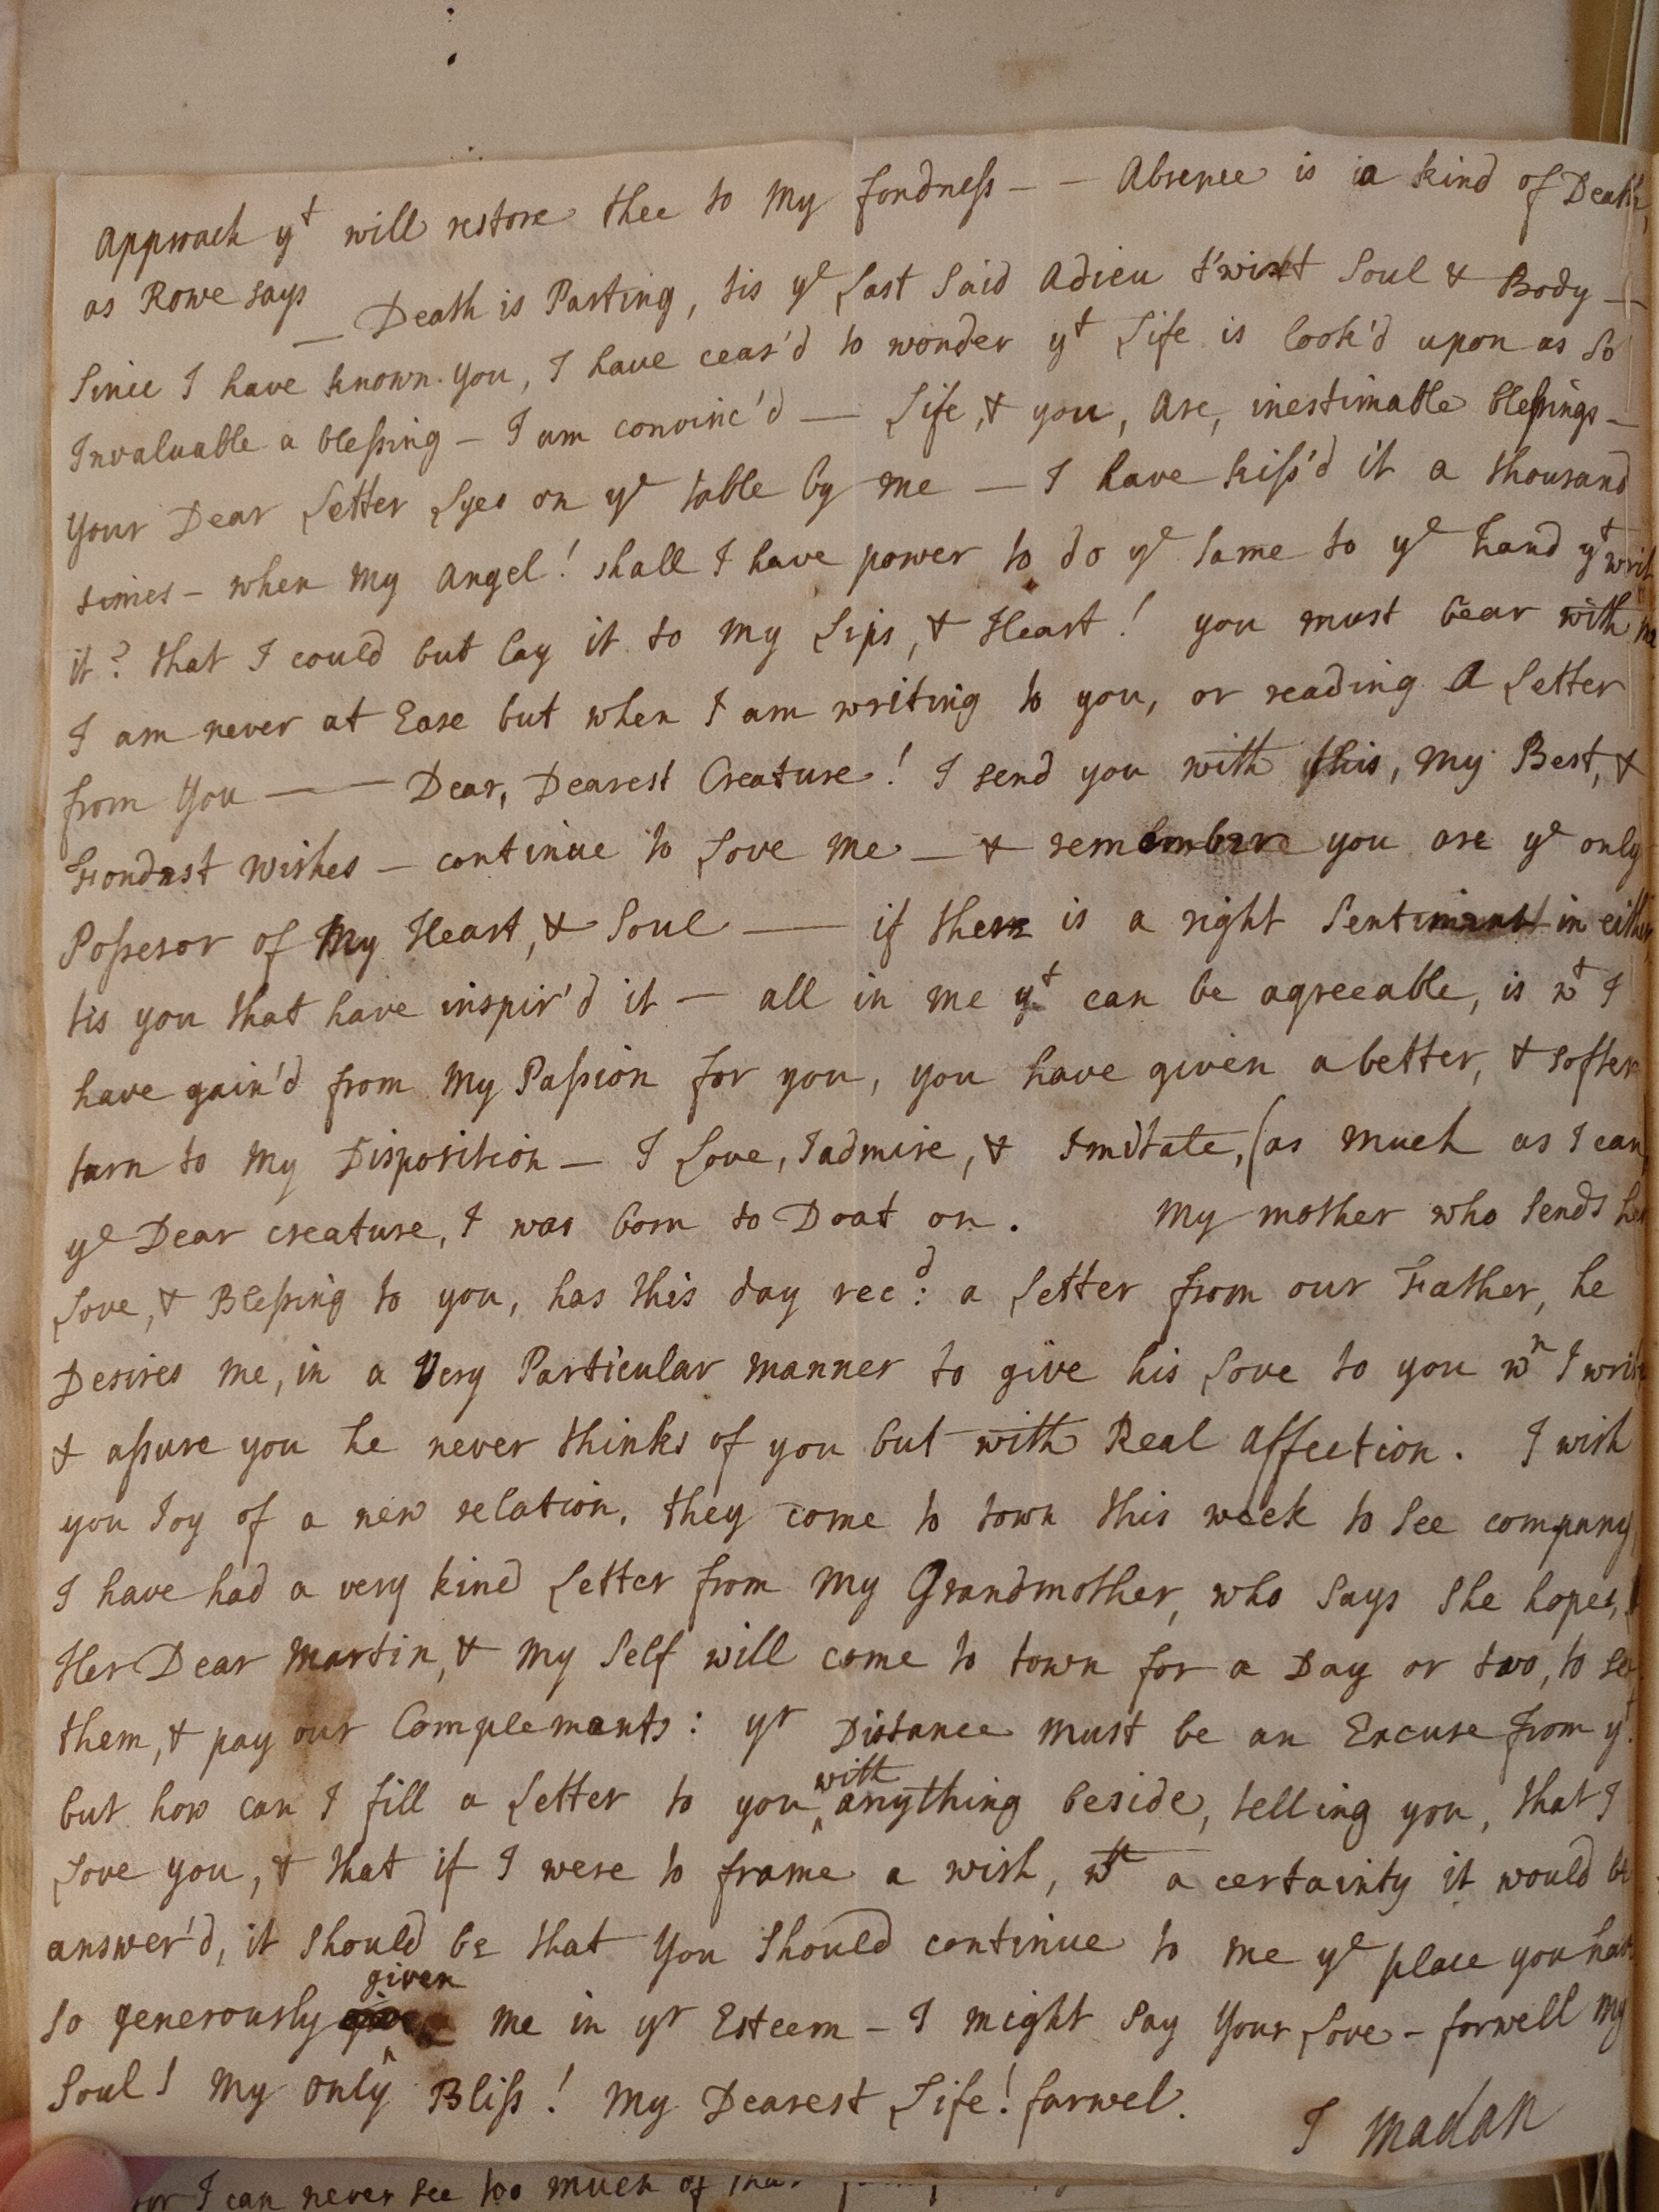 approach yt will restore thee to my fondness - - Absence is a kind of Death,
as Rowe says — Death is Parting, tis ye Last Said adieu t'wixt Soul & Body —
Since I have known you, I have ceas'd to wonder yt Life is look'd upon as so
Invaluable a blessing - I am convinc'd — Life, & you, are, inestimable blessings -
your Dear Letter Lyes on ye table by me — I have kiss'd it a thousand
times - when my angel! shall I have power to do ye same to ye hand yt writ
it? that I could but lay it to my Lips, & Heart! you must bear with me
I am never at Ease but when I am writing to you, or reading a Letter
from you — — Dear, Dearest Creature! I send you with this, my Best, &
Fondest wishes - continue to Love me - & remember you are ye only
Possesor of my Heart, & Soul — if there is a right Sentiment in either
tis you that have inspir'd it — all in me yt can be agreeable, is wt I
have gain'd from my Passion for you, you have given a better, & softer
turn to my Disposition — I Love, I admire, & Imitate, (as much as I can,
ye Dear creature, I was born to Doat on. My mother who sends her
Love, & Blessing to you, has this day rec:d a Letter from our Father, he
Desires me, in a Very Particular manner to give his Love to you wn I write
& assure you he never thinks of you but with Real affection. I wish
you Joy of a new relation, they come to town this week to see company
I have had a very kind Letter from my Grandmother, who says she hopes,
Her Dear Martin, & my Self will come to town for a Day or two, to see
them, & pay our Complements: yr Distance must be an Excuse from yt.
but how can I fill a Letter to you ^with anything beside, telling you, that I
Love you, & that if I were to frame a wish, wth a certainty it would be
answer'd, it should be that you should continue to me ye place you have
so generously ^given me in yr Esteem - I might say your Love - forwell my
Soul! my only Bliss! my Dearest Life! farwel.
I Madan
for I can never see too much of that